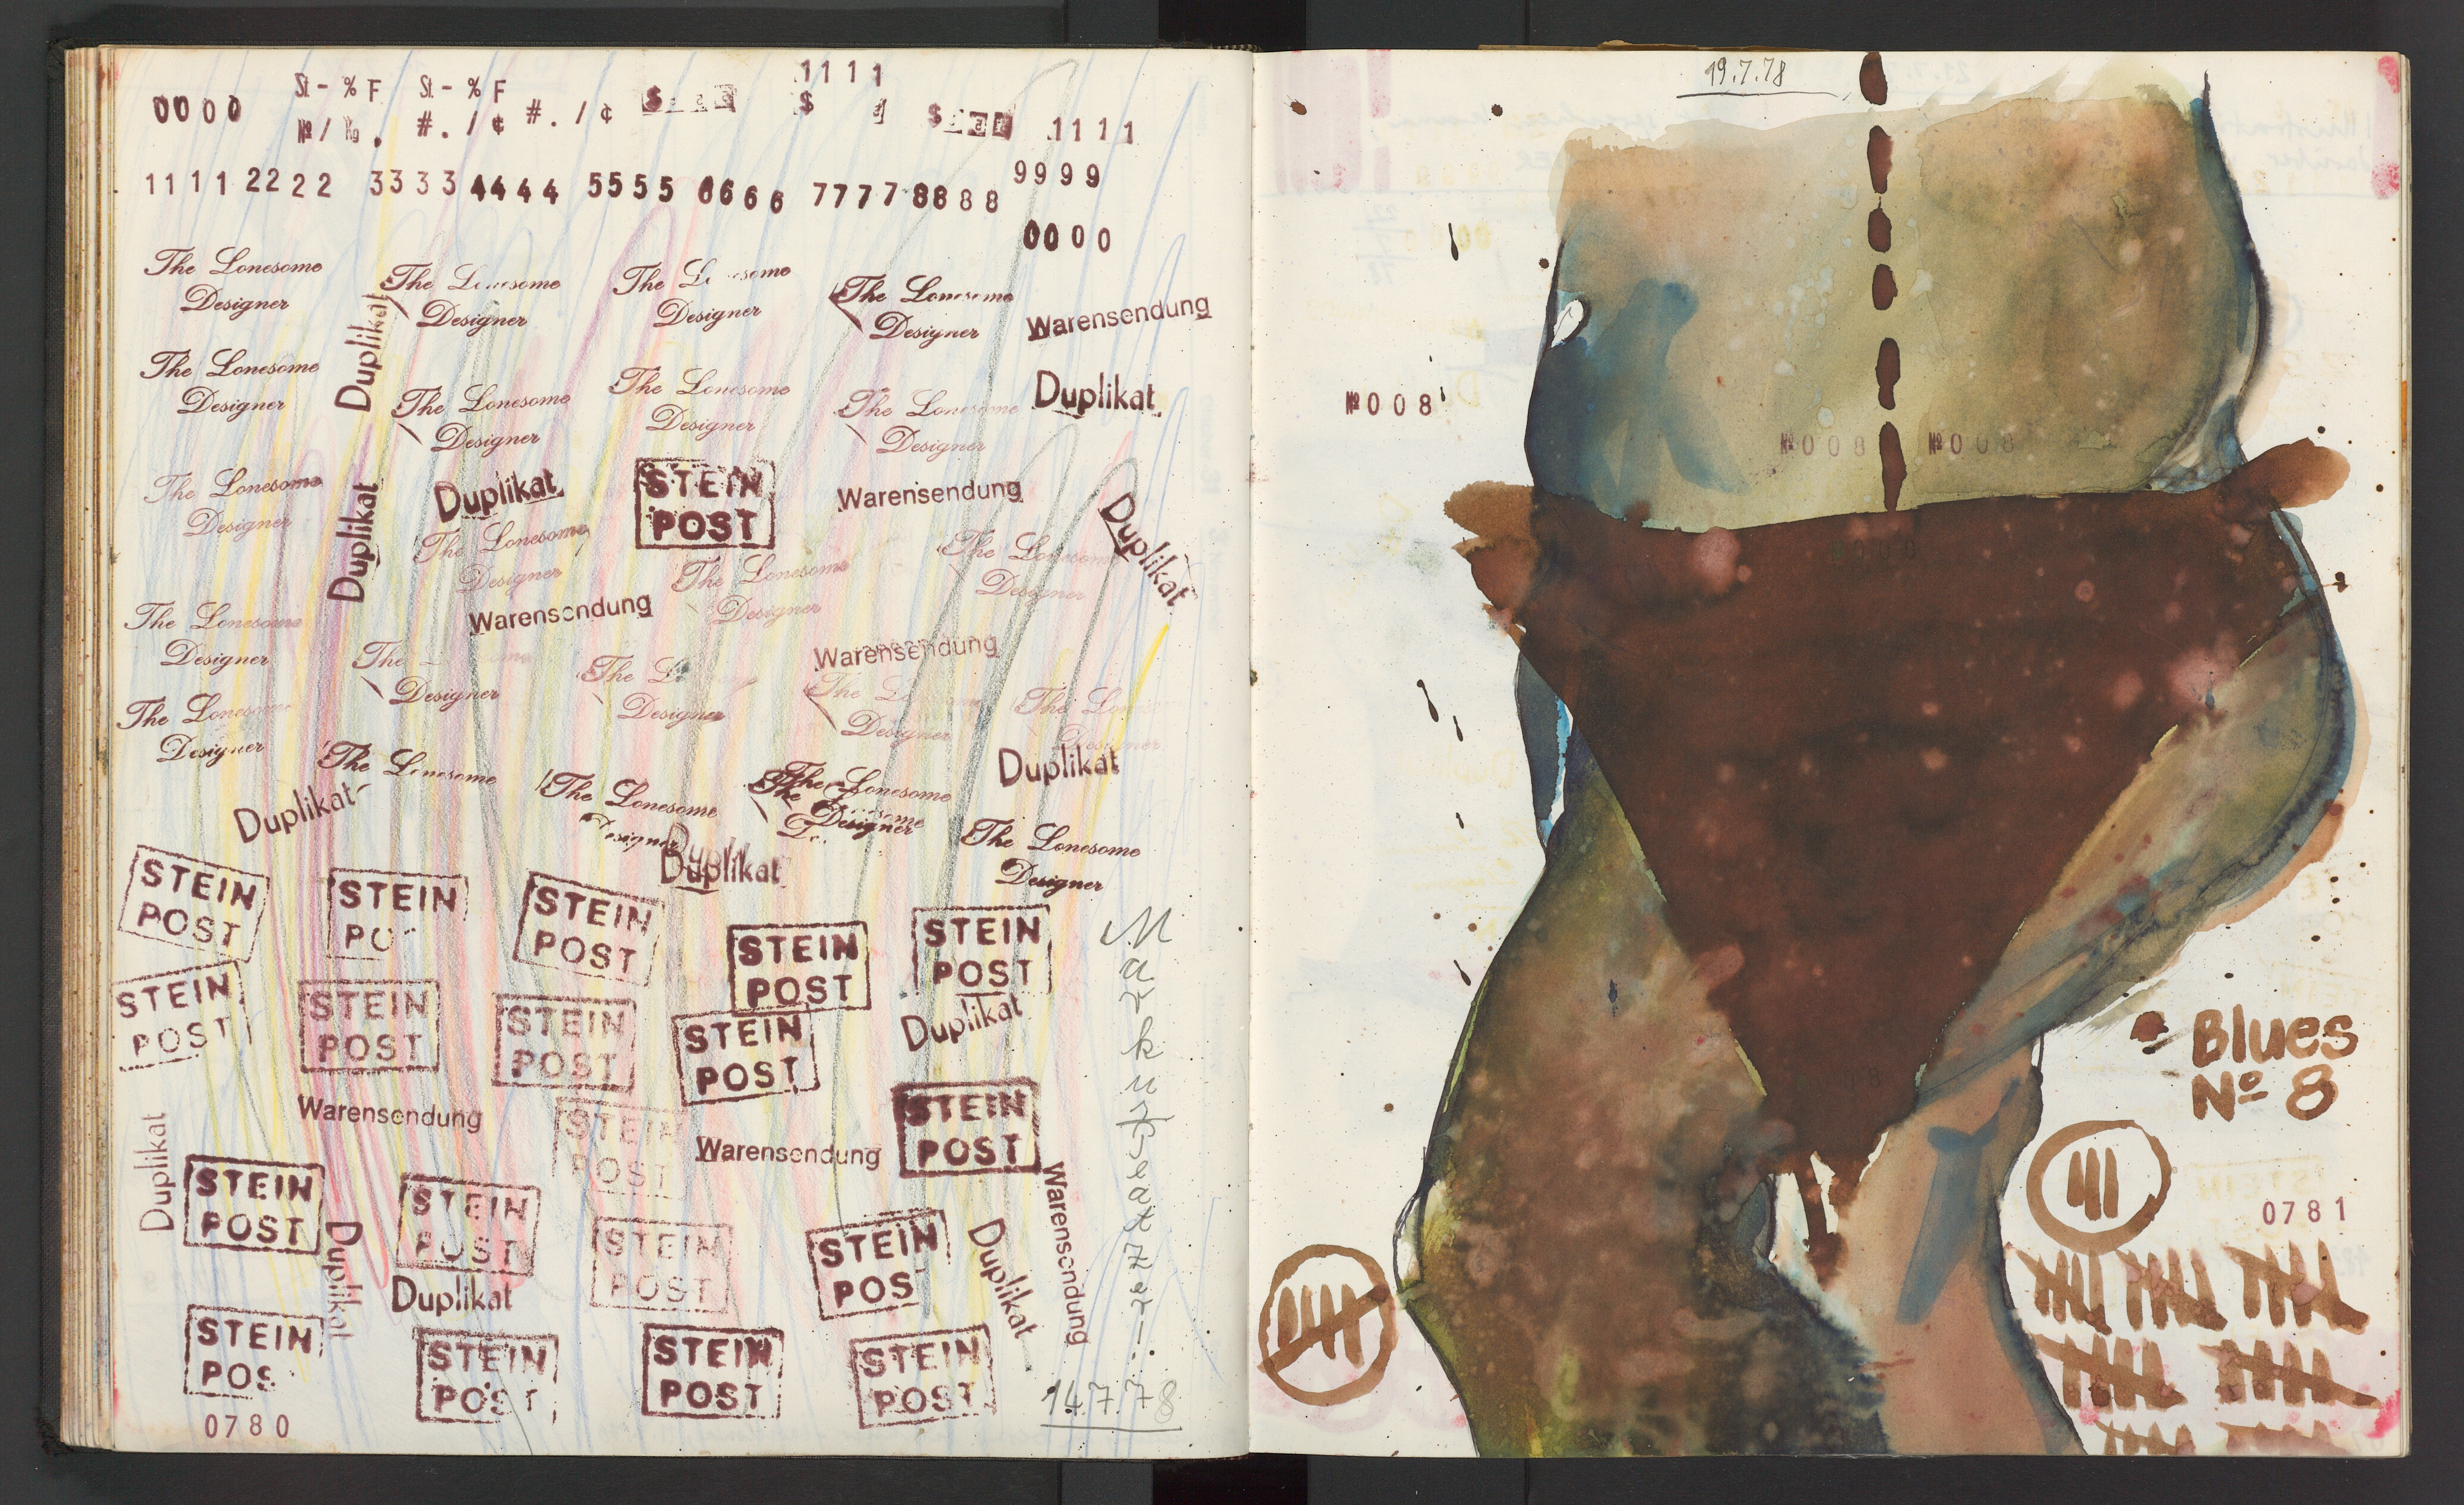 1111
St - % F St - % F
0000
$
$
№ / . #. / ¢ #. / ¢
1111
1111 2222 3333 4444 5555 6666 7777 8888 9999
0000
The Lonesome
Designer
The Lonesome
Designer
The L some
Designer
The Lonesome
Designer
Warensendung
Duplikat
The Lonesome
Designer
The Lonesome
Designer
The Lonesome
Designer
The Lonesome
Designer
Duplikat
The Lonesome
Designer
Duplikat
Duplikat
STEIN
POST
Warensendung
Duplikat
The Lonesome
Designer
The Lonesome
Designer
The Lonesome
Designer
Warensendung
The Lonesome
Designer
The
Designer
The L
Designer
Warensendung
The L
Designer
The Lon
Designer
The Lonesome
Designer
The Lonesome
The Lonesome
Designer
The Lonesome
The Lonesome
Designer
Duplikat
Duplikat
Duplikat
The Lonesome
Designer
STEIN
POST
STEIN
PO
STEIN
POST
STEIN
POST
STEIN
POST
STEIN
POST
STEIN
POST
STEIN
POST
STEIN
POST
Duplikat
Warensendung
STEIN
POST
Warensendung
STEIN
POST
Duplikat
STEIN
POST
Duplikat
STEIN
POST
Duplikat
STEIN
POST
STEIN
POS
Duplikat
Warensendung
STEIN
POS
STEIN
POST
STEIN
POST
STEIN
POST
0780
14.7.78
19.7.78
№008
№008 №008
Blues
Nº 8
0781